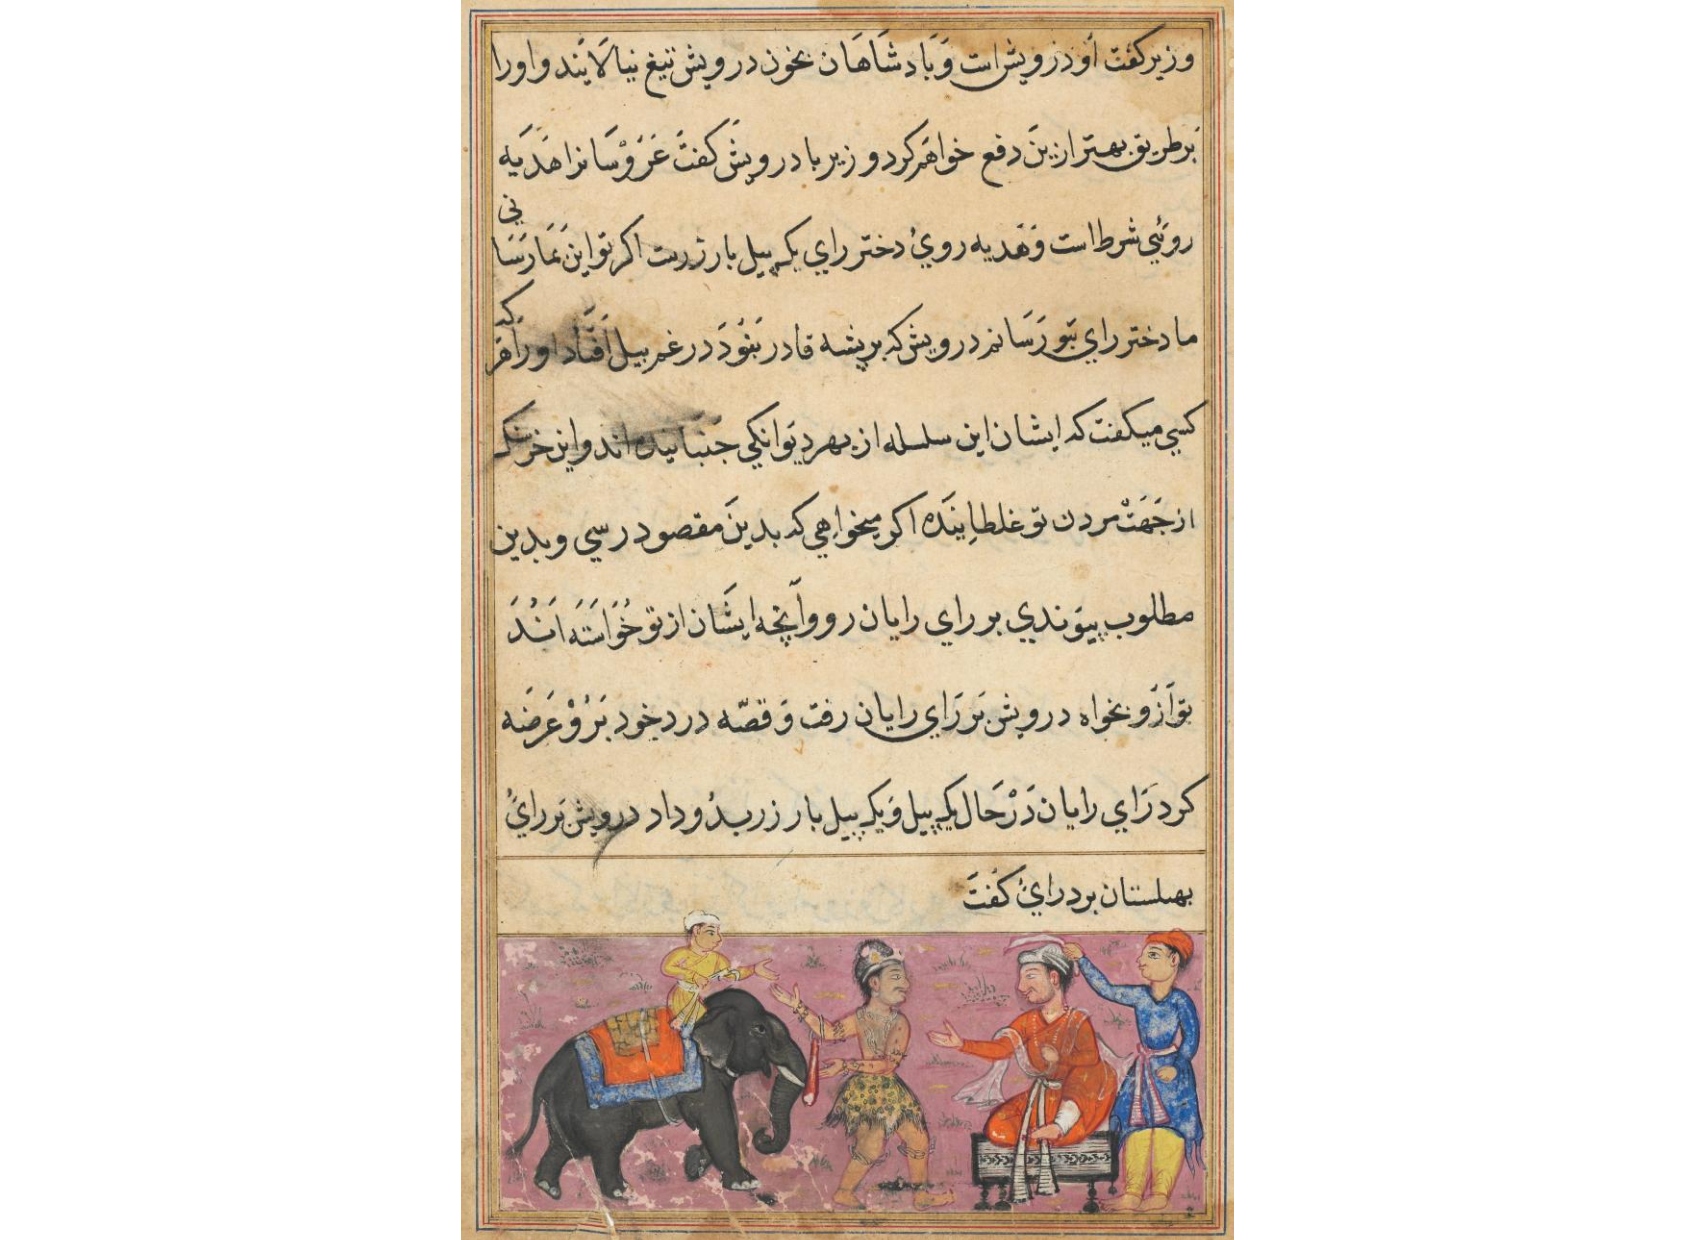 وزیر کفت او درویش است وَبَادشَاهَان بخون درویش تیغ نیالایند و اورا
بَرطریق بهتر ازینَ دفع خواهَم کرد وزیر با درویش کفتَ عَرُوْسَانرا هَدَیه
روئي شرط است وَهَدیه روي دختر راي یک پیل بار زرست اکر تو اینَ بمَا رَسَا
ني
ما دختر راي بتو رَسَانم درویش که بر پشه قادر نبُودَ در غم پیل اُفتَاد اورا هر
که
کسي میکفت که ایشان این سلسله از بهر دیوانکي جنبَانیده اند و این خرسنک
از جَهَتْ مردن تو غلطانِیَده اکر میخواهِي که بدینَ مقصود رسي و بدین
مطلوب پیَوندي بر راي رایان رو وآنچه ایشَان از تو خُوَاستَه اَنْدَ
تو اَزو بخواه درویش بَر رَاي رایان رفت وَ قصّه درد خود بَرُوْ عَرضَه
کرد رَاي رایان دَرْ حَال یک پیل وَ یک پیل بار زر بدُو داد درویش بَر رايُ
بهلستان برد راي کُفتَ